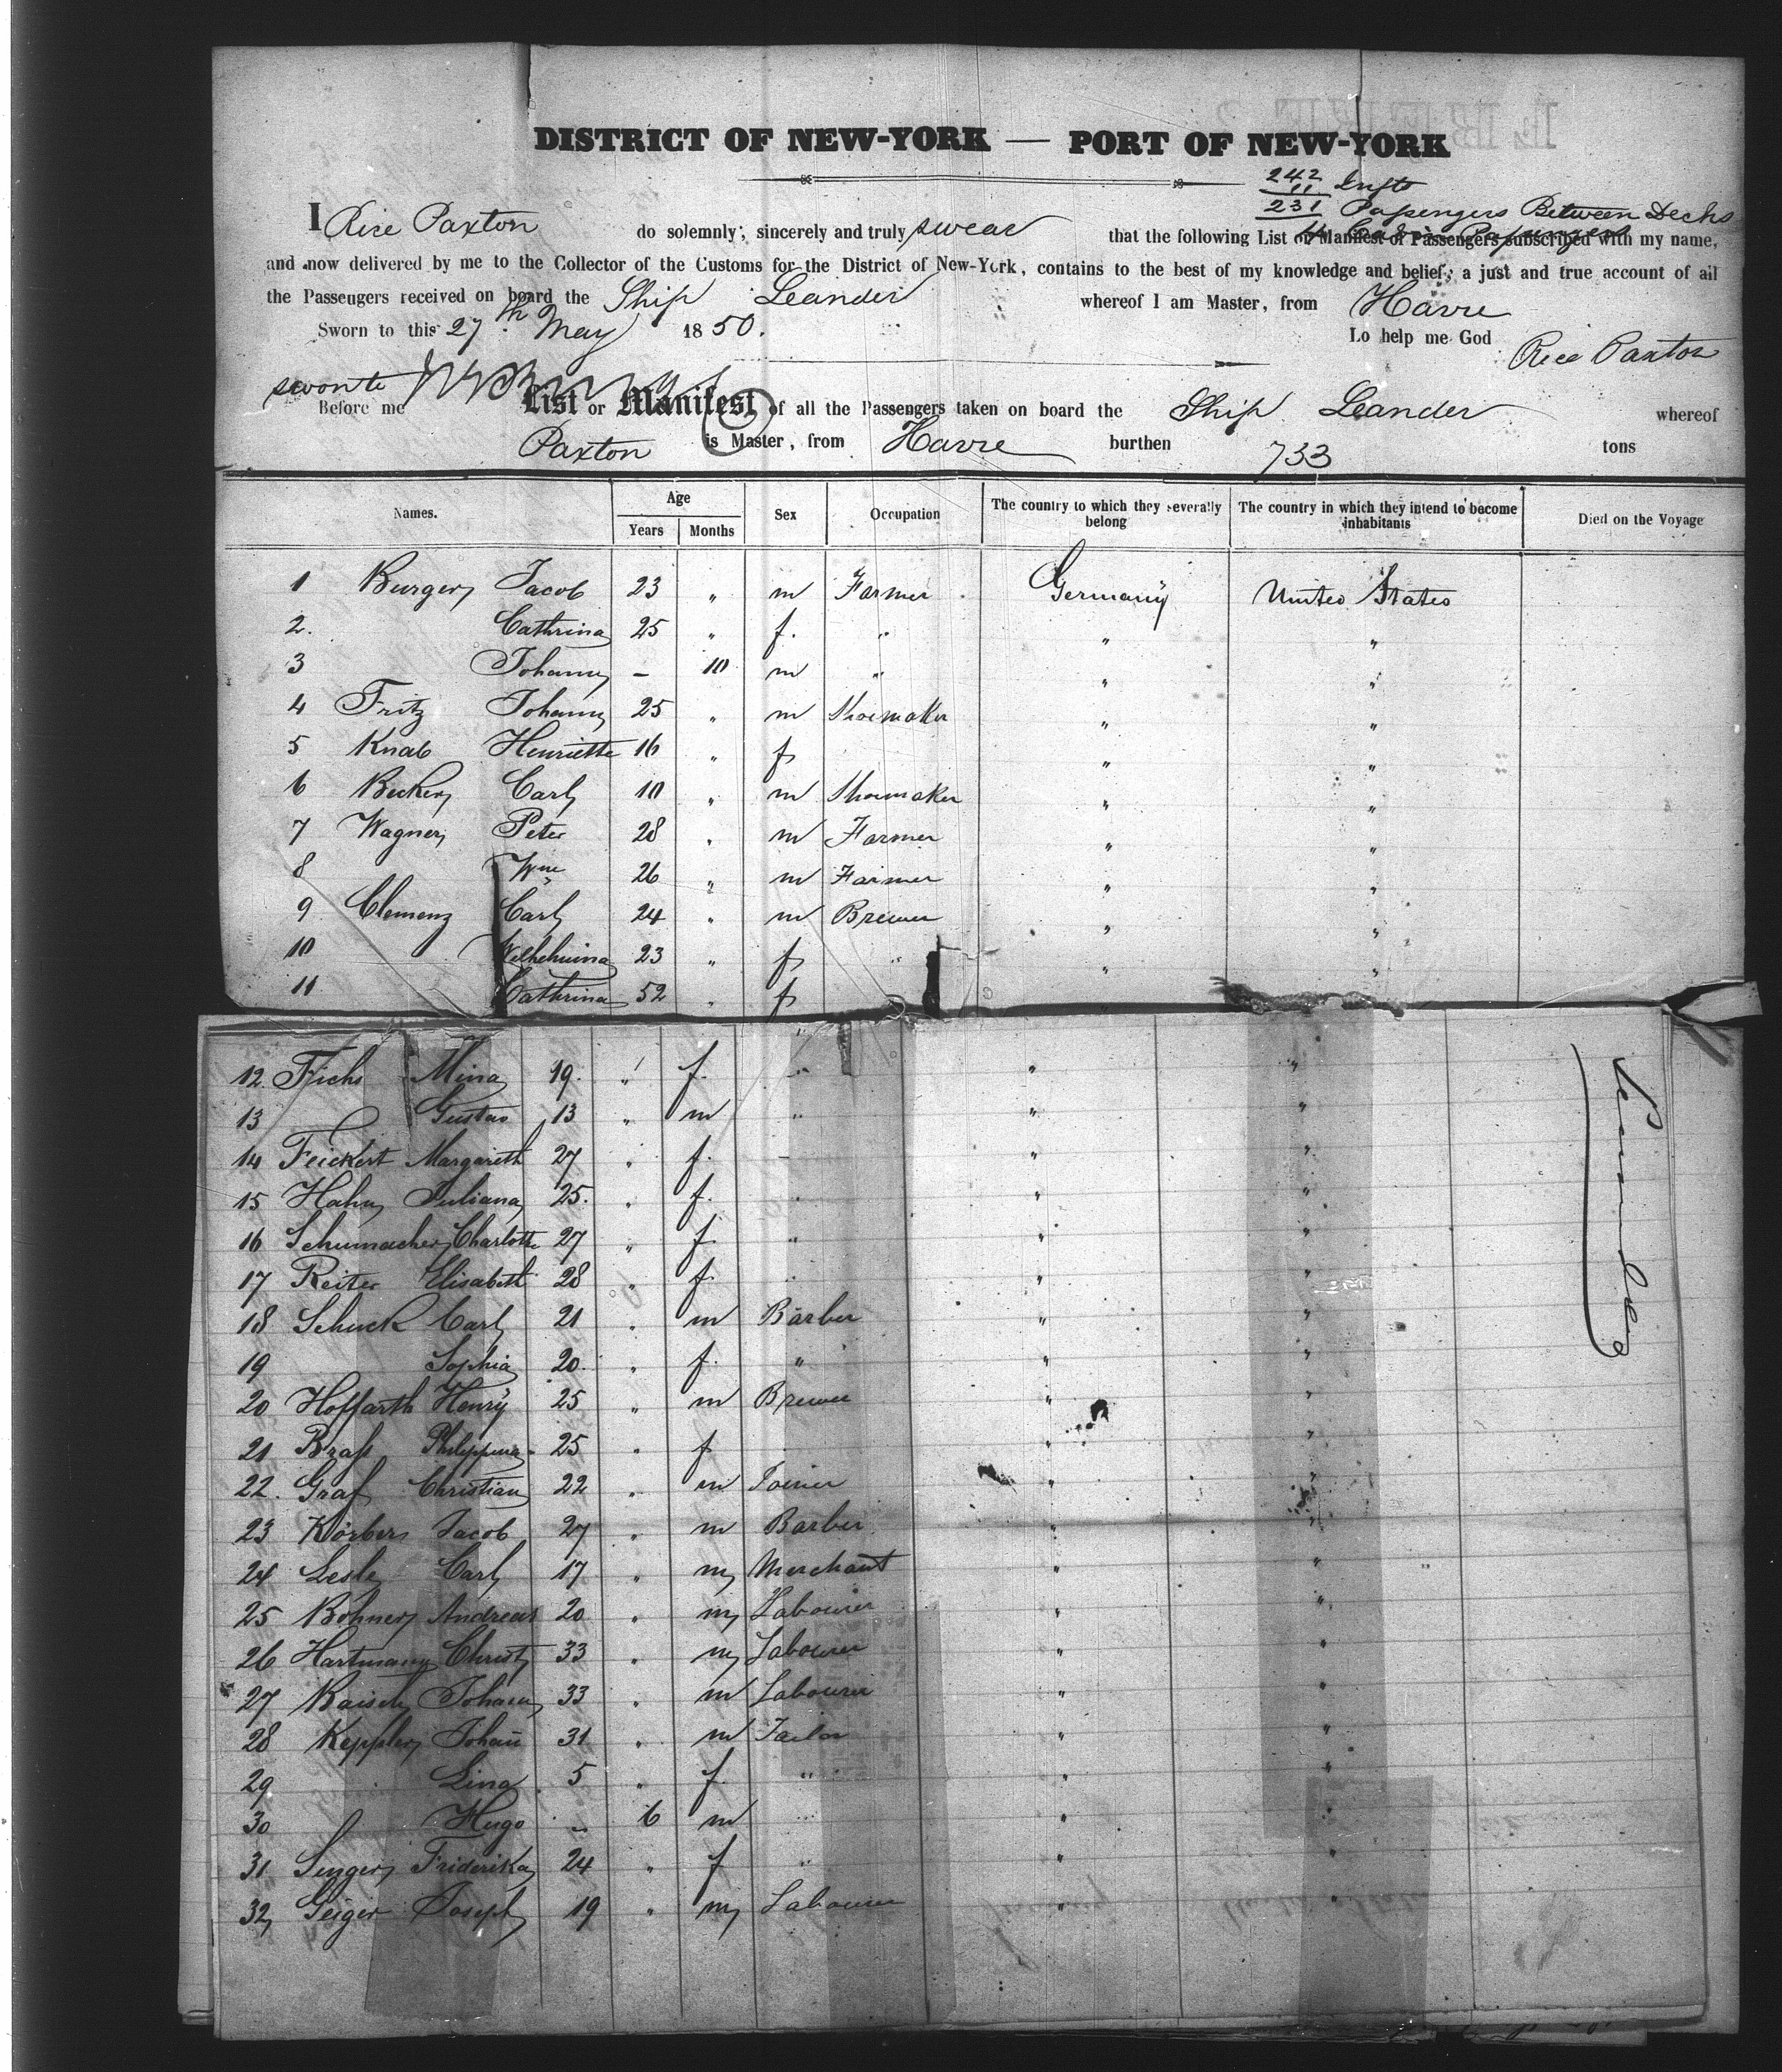 DISTRICT OF NEW-YORK — PORT OF NEW-YORK
242
11
231 Passengers Between Decks
4 Cabin Passengers
I Rice Paxton do solemnly, sincerely and truly swear that the following List or Manifest of Passengers subscribed with my name,
and now delivered by me to the Collector of the Customs for the District of New-York, contains to the best of my knowledge and belief, a just and true account of all
the Passengers received on board the Ship Leander whereof I am Master, from Havre
Sworn to this 27th May 1850. So help me God Rice Paxton
Before me
List or Manifest of all the Passengers taken on board the Ship Leander whereof
Paxton is Master, from Havre burthen 733 tons
Names. Age Sex Occupation The country to which they severally belong The country in which they intend to become inhabitants Died on the Voyage
Years Months
1 Burger Jacob 23 " m Farmer Germany United States
2. Cathrina 25 " f. " " "
3 Johann – 10 m " " "
4 Fritz Johann 25 " m Shoemaker " "
5 Knab Henriette 16 " f " "
6 Becker Carl 10 " m Shoemaker " "
7 Wagner Peter 28 " m Farmer " "
8 Wm 26 " m Farmer " "
9 Clemenz Carl 24 " m Brewer " "
10 Wilhelmina 23 " f " " "
11 Cathrina 52 " f
12 Mina 19. " f. " " "
13 Gustav 13 " m " " "
14 Feickert Margareth 27 " f. "
15 Hahn Juliana 25. " f. " "
16 Schumacher Charlotte 27 " f. " " "
17 Reiter Elisabeth 28 " f. " "
18 Schuck Carl 21 " m Barber " "
19 Sophia 20. " f. " " "
20 Hoffarth Henry 25 " m Brewer " "
21 Brass Philippina 25 " f " "
22. Graf Christian 22 " m Joiner " "
23 Körber Jacob 27 " m Barber "
24 Carl 17 " m Merchant " "
25 Bohner Andreas 20 " m Labourer " "
26 Hartmann Christ 33 " m Labourer " "
27 Raisch Johann 33 " m Labourer " "
28 Keppler Johañ 31 " m Tailor " "
29 Lina 5 " f. " " "
30 Hugo – 6 m " "
31 Senger Friderika 24 " f " " "
32 Geiger Joseph 19 " m Labourer " "
Leander